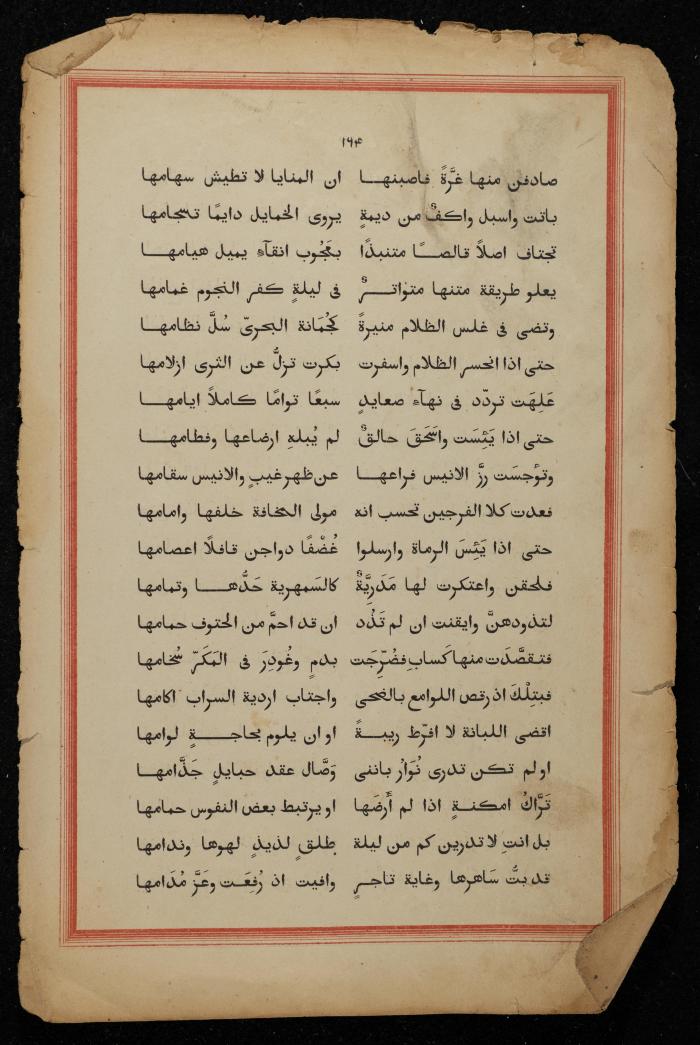 ١٦٤
صادفن منها غَرَّةً فاصبنهـا ان المنايا لا تطيش سهامها
باتت واسبل واكفٌ من ديمةٍ يروى الخمايل دايمًا تسجامها
تجتاف اصلاً قالصـًا متنبذًا بعَجُوب انقآءٍ يميل هيامهـا
يعلو طريقة متنها متواتـرٌ فى ليلةٍ كفر النجوم غمامها
وتضى فى غلس الظلام منيرةً كجُمَانة البحرىّ سُلَّ نظامهـا
حتى اذا انحسر الظلام واسفرت بكرت تزلُّ عن الثرى ازلامها
عَلِهَت تردّد فى نهآء صعايدٍ سبعًا توامًا كاملاً ايامهـا
حتى اذا يَئِسَت واسْحَقَ حالقٌ لم يُبلهِ ارضاعها وفطامهـا
وتوَجسَت رزَّ الانيس فراعهـا عن ظهر غيبٍ والانيس سقامها
فعدت كلا الفرجين تحسب انه مولى المخافة خلفها وامامها
حتى اذا يَئِسَ الرماة وارسلوا غُضْفًا دواجن قافلًا اعصامها
فلحقن واعتكرت لها مَدَرِيَّةٌ كالسَمهرية حَدُّهـا وتمامها
لتذودهنَّ وايقنت ان لم تَذُد ان قد احمَّ من الحتوف حمامها
فتقصَّدَت منها كَسابِ فضُرِّجَت بدمٍ وغُودِرَ فى المَكَرّ سُخامها
فبتِلْكَ اذ رقص اللوامع بالضحى واجتاب اردية السراب اكامها
اقضى اللبانة لا افرّط ريبـةً او ان يلوم بحاجـةٍ لوامها
اولم تكن تدرى نُوَارُ باننى وَصَّال عقد حبايلٍ جَذَّامهـا
تَرَّاكُ امكنـةٍ اذا لم أَرضَها او يرتبط بعض النفوس حمامها
بل انتِ لا تدرين كم من ليلة طلقٍ لذيذٍ لهوها وندامها
قد بتُّ سَاهرها وغاية تاجـرٍ وافيت اذ رُفِعَت وعَزَّ مُدَامها